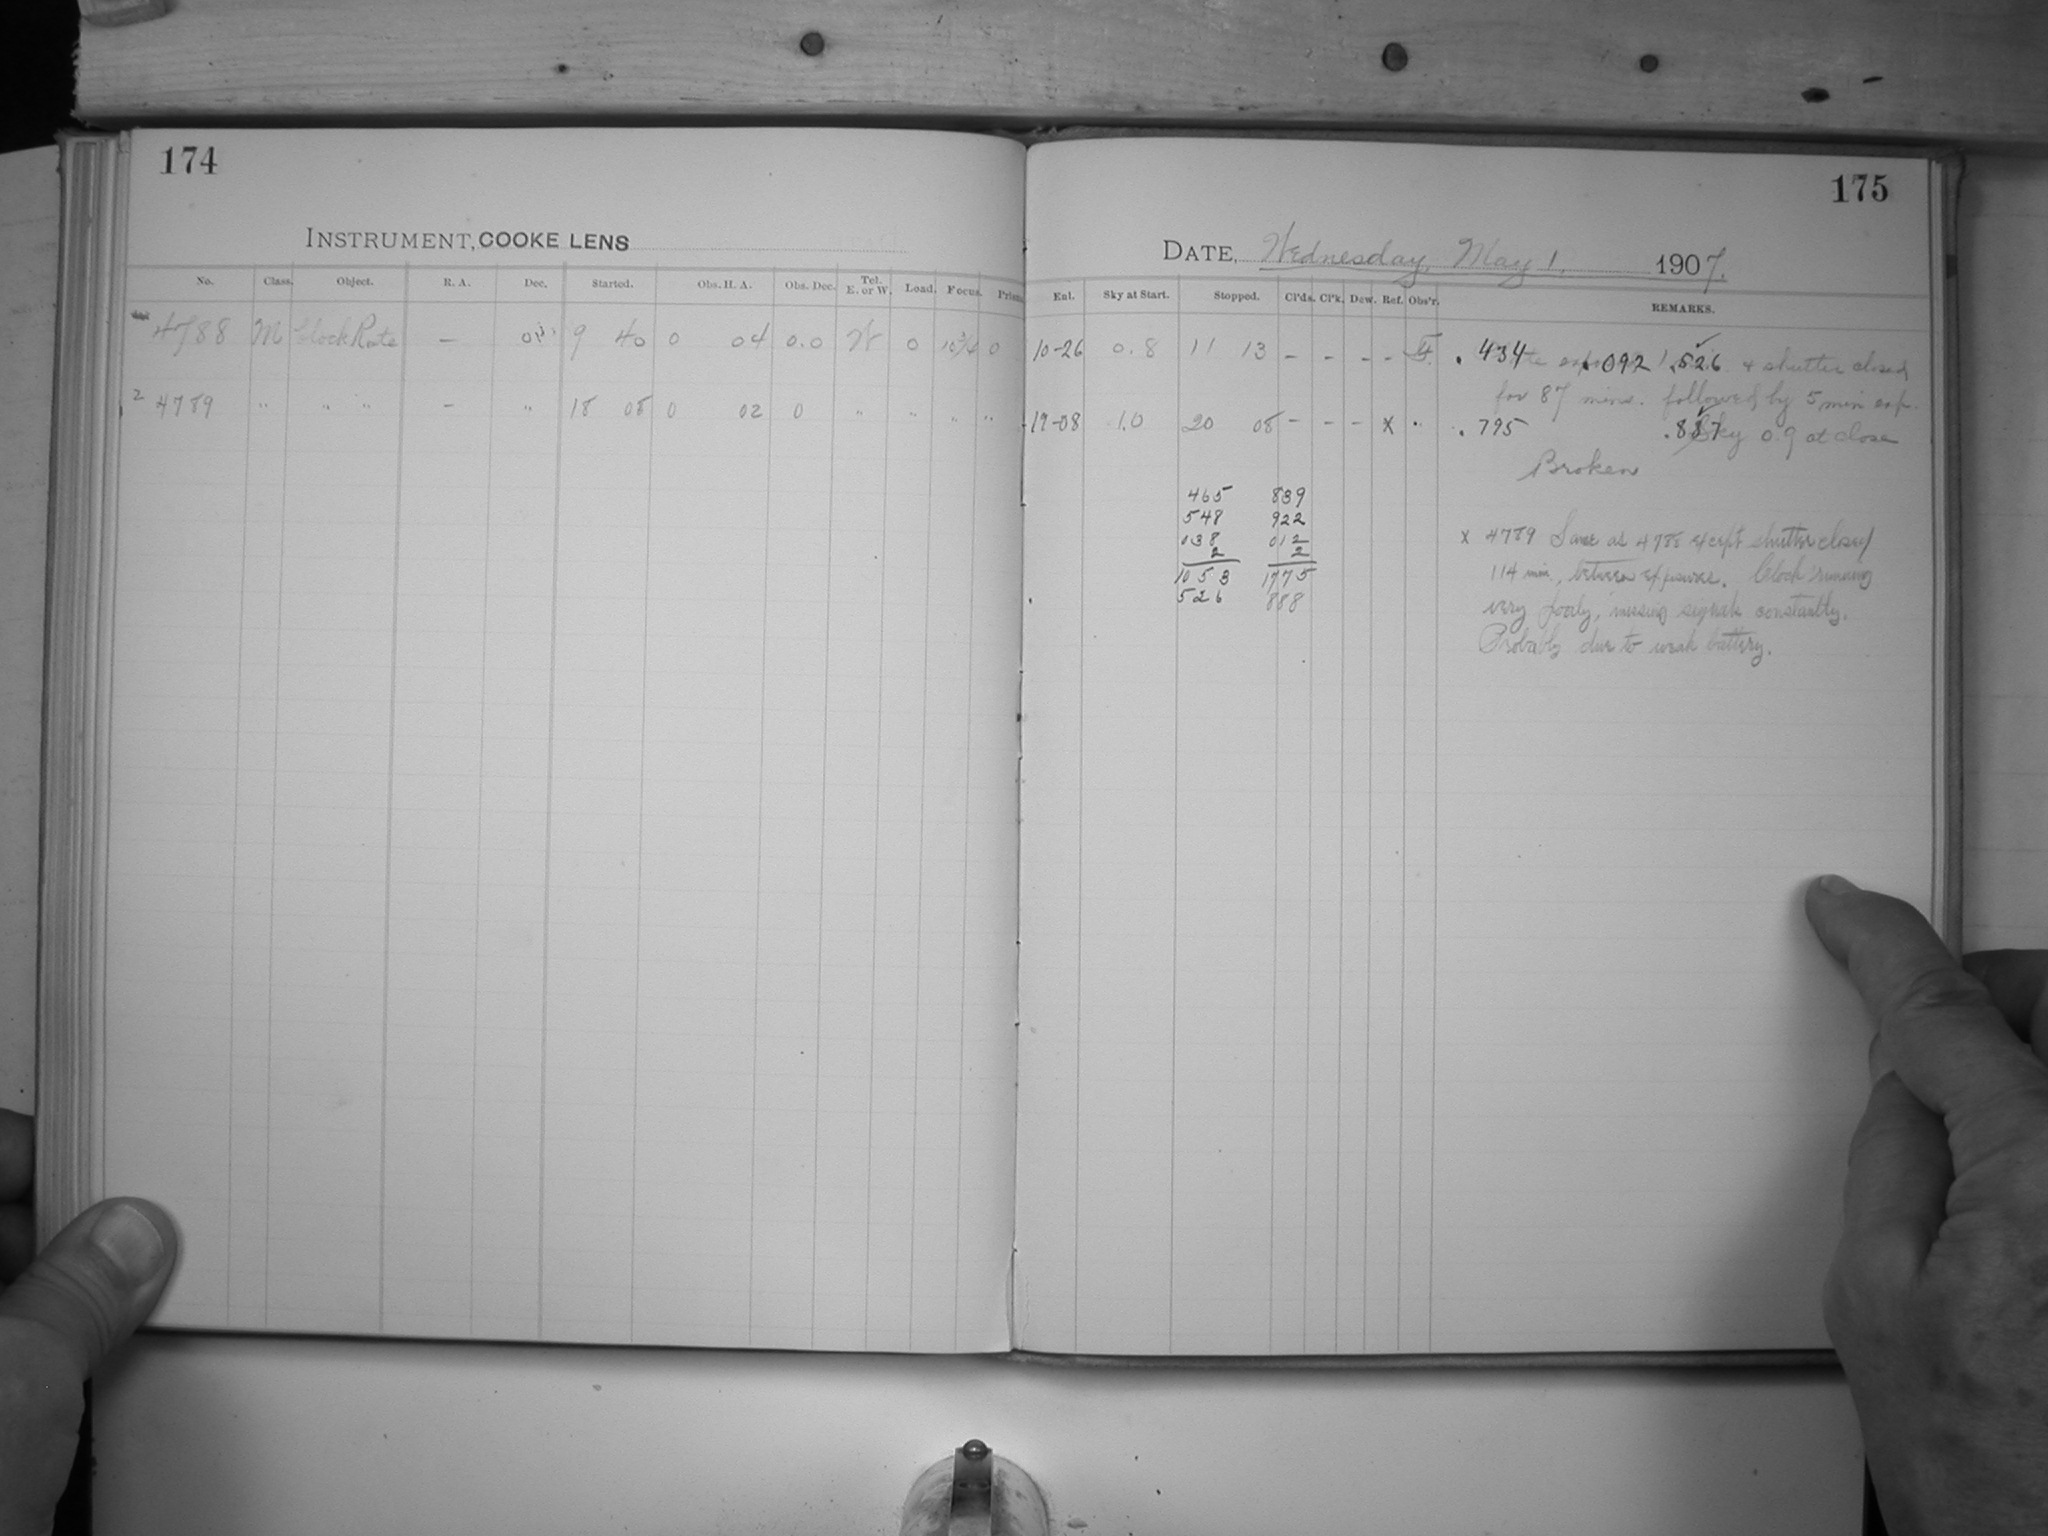 174
INSTRUMENT, COOKE LENS
No. Class. Object. R. A. Dec. Started. Obs. H. A. Obs. Dec. Tel. E. or W. Load. Focus. Prisms
4788 M Clock Rate — 9 40 0 04 0.0 W 0 10 3/4 0
2 4789 " " " — " 18 08 0 02 0 " " " "
175
DATE, Wednesday, May 1, 1907.
Ext. Sky at Start. Stopped. Cl'ds. Cl'k. Dew. Ref. Obs'r. REMARKS.
10-26 0.8 11 13 – – – – .434 .092 .526 & shutter closed
for 87 mins. followed by 5 min exp.
19-08 1.0 20 08 – – – x .795 .887 Sky 0.9 at close
Broken
465 839
548 922
038 012
2 2
1053 1775
526 888
x 4789 Same as 4788 except shutter closed
114 min., between exposures. Clock running
very poorly, missing signals constantly.
Probably due to weak battery.